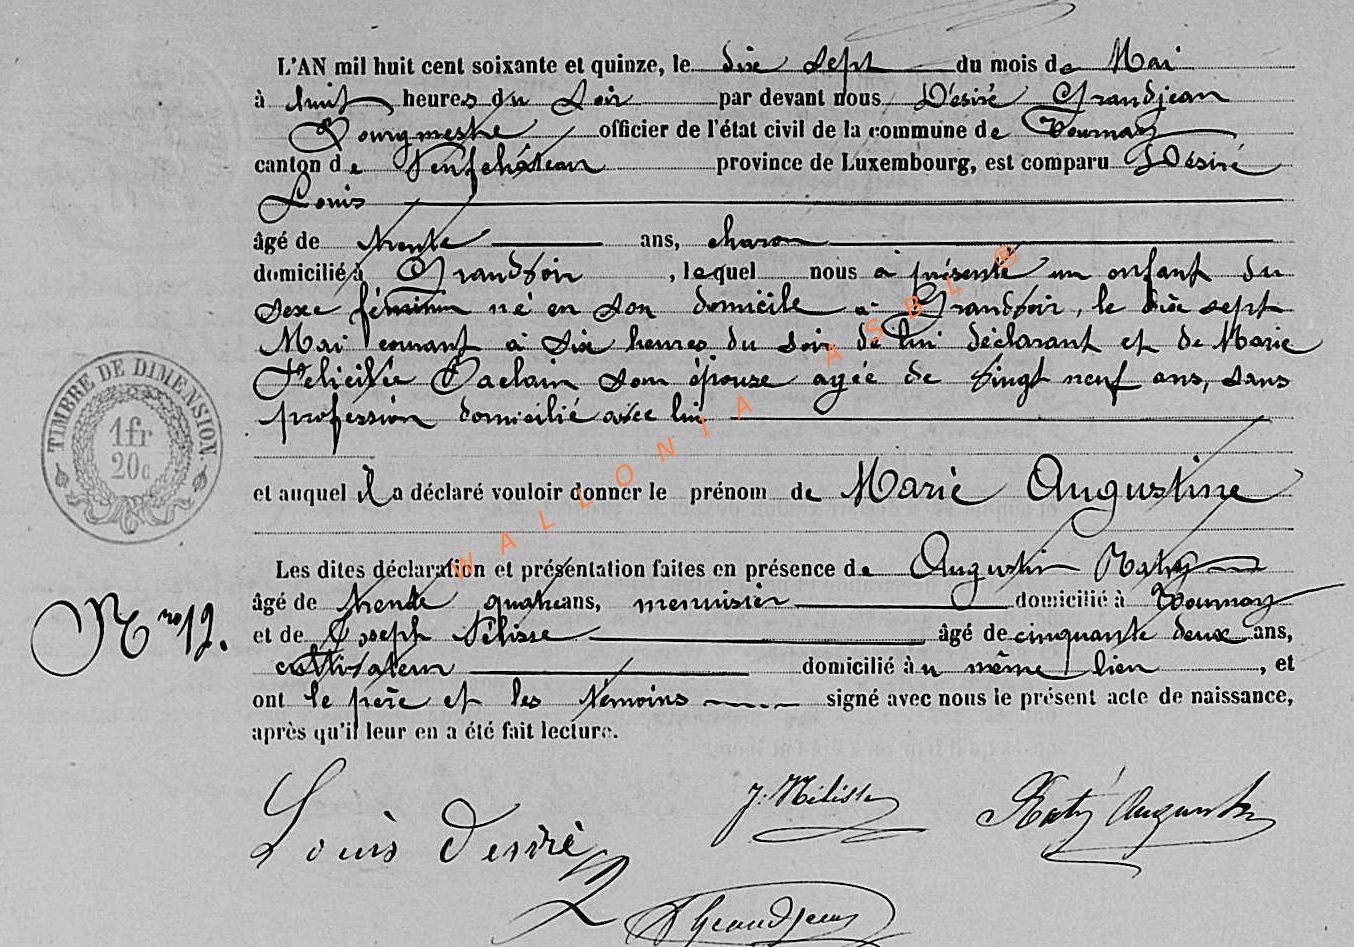 L'AN mil huit cent soixante et quinze, le dix sept du mois de Mai
à huit heures du Soir par devant nous Désiré Grandjean
Bourgmestre officier de l'état civil de la commune de Tournay
canton de Neufchâteau province de Luxembourg, est comparu Désiré
Louis
âgé de trente ans, charon
domicilié à Grandvoir, lequel nous a présenté un enfant du
sexe féminin né en son domicile à Grandvoir, le dix sept
Mai courant à six heures du soir de lui déclarant et de Marie
Félicitée son épouse agée de vingt neuf ans, sans
profession domicilié avec lui
et auquel il a déclaré vouloir donner le prénom de Marie Augustine
Les dites déclaration et présentation faites en présence de Augustin
âgé de trente quatre ans, menuisier domicilié à Tournay
et de Joseph Nélisse âgé de cinquante deux ans,
cultivateur domicilié àu même lieu, et
ont le père et les témoins signé avec nous le présent acte de naissance,
après qu'il leur en a été fait lecture.
TIMBRE DE DIMENSION
1fr
20c
Nro 12.
WALLONIA ASBL ®
Louis Desiré
J. Nélisse
Augustin
Grandjean